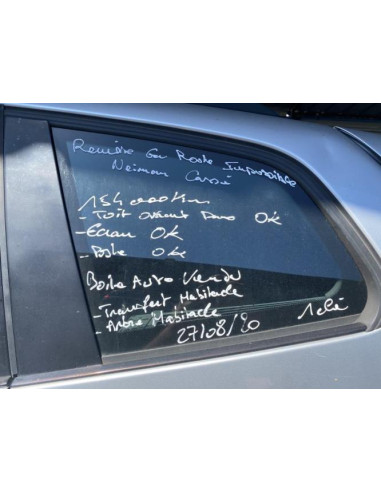 Remise en Route Impossible
Neiman Cassé
154 000 Km
- Toit ouvrant Pano OK
- Ecran OK
- Boite OK
Boite Auto Vendu
- Transfert Habitacle
- Arbre Habitacle
27/08/20 1 clé